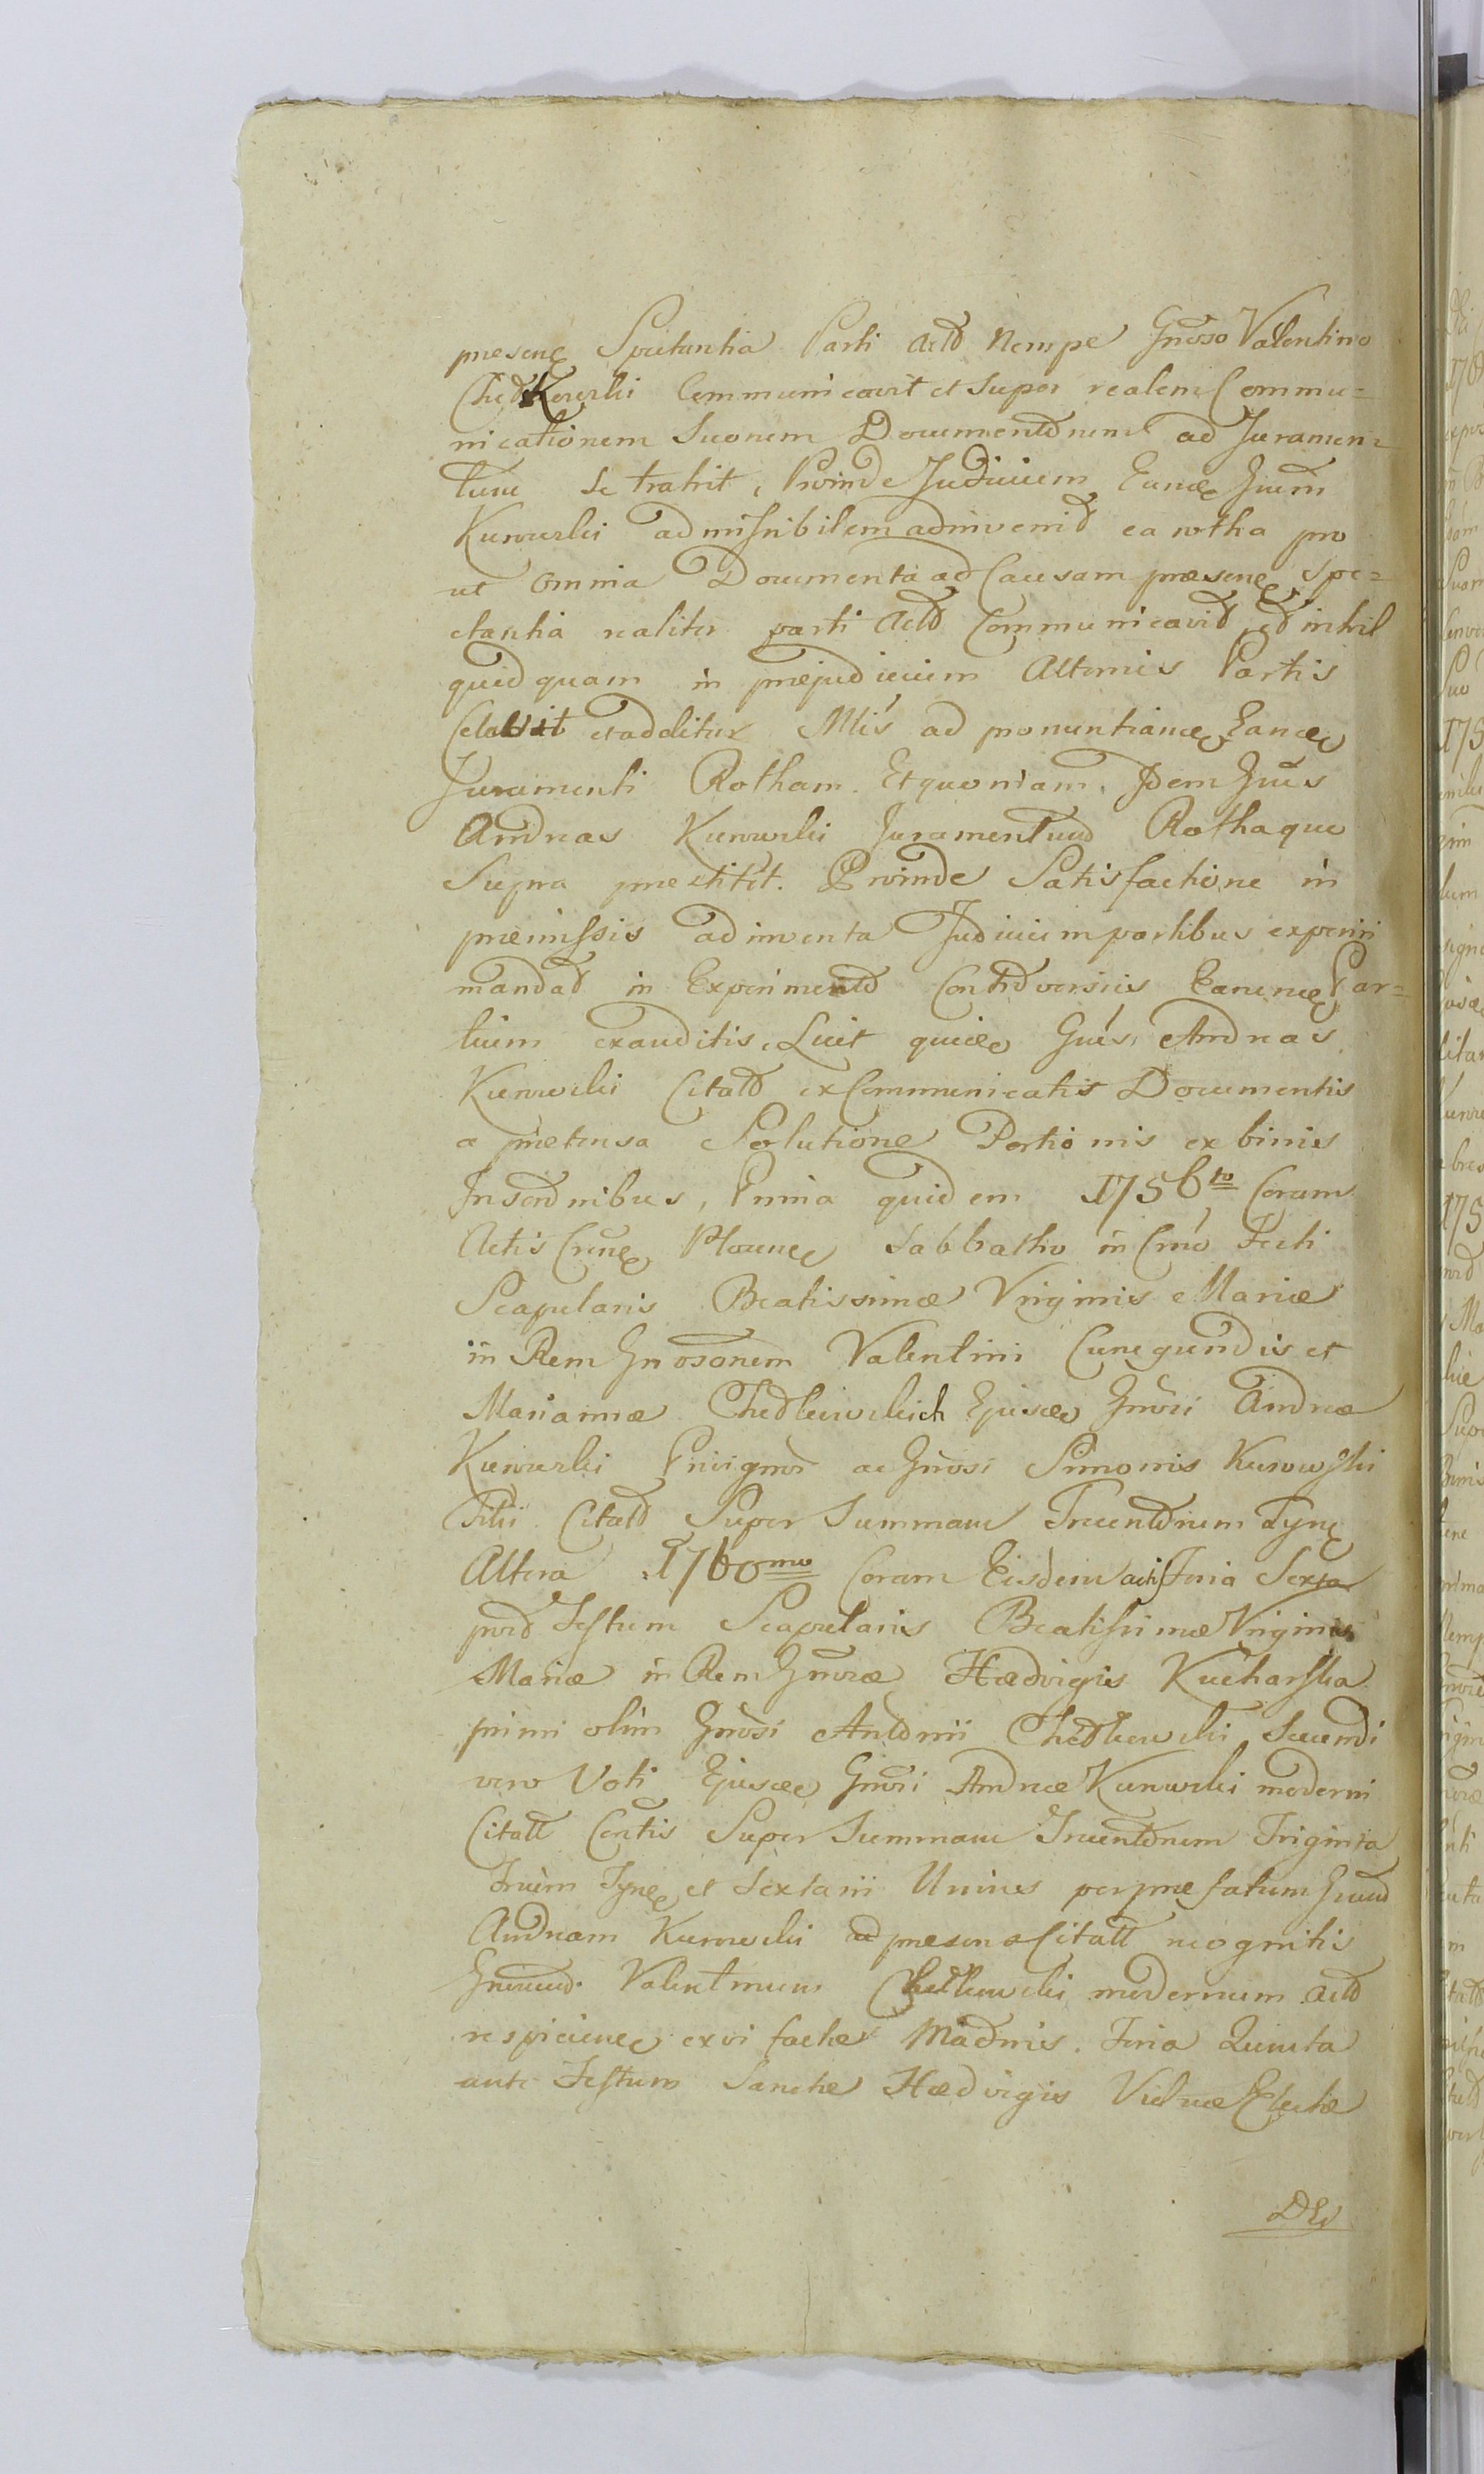 presenc Spectantia Parti Actd Nempe Gnoso Valentino
Chedkowski Communicavit et Super realem Commu=
nicationem Suorum Documentorum ad Juramen=
tum Se trahit, Proinde Judicium Eunde Gnum
Kurowski admissibilem adinvenid ea rotha pro
ut Omnia Documenta ad Causam præsenc Spe=
ctantia realiter parti Actd Communicavid, ed inhil
quidquam in præjudicium Alterius Partis
Celavit et additur Mlis ad pronuntiand Eande
Juramenti Rotham. Et quoniam, Idem Gnus
Andreas Kurowski Juramentum Rothaque
Supra prestitit. Proinde Satisfactione in
præmissis adinventa Judicium partibus experiri
mandad in Experimentd Controversiis Earunde Par=
tium exauditis, Licet quide Gnus Andreas
Kurowski Citatd ex Communicatis Documentis
a prætensa Solutione Portionis ex binis
Inscriptionibus, Prima quidem 1756to Coram
Actis Crne Plocenc Sabbatho in Crno Festi
Scapularis Beatissimæ Virginis Mariæ
in Rem Gnosorum Valentini Cunegundis et
Mariannæ Chedkowskich Ejusde Gnosi Andreæ
Kurowski Privignor ac Gnosi Simonis Kurowski
Filii Citatd Super Summam Trecentorum Tync
Altera 1760mo Coram Eisdem actis Feria Sexta
post Festum Scapularis Beatissimæ Virginis
Mariæ in Rem Gnosæ Hædvigis Kucharska
primi olim Gnosi Antonii Chedkowski Secundi
vero Voti Ejusde Gnosi Andreæ Kurowski moderni
Citatt Contis Super Summam Trecentorum Triginta
Trium Tync et Sextarii Unius per præfatum Gnum
Andream Kurowski ad præsens Citatt recognitis
Gnosum Valentinum Chedkowski modernum Actd
respicienc ex vi factæ Madris. Feria Quinta
ante Festum Sanctæ Hædvigis Viduæ Electæ
DEi